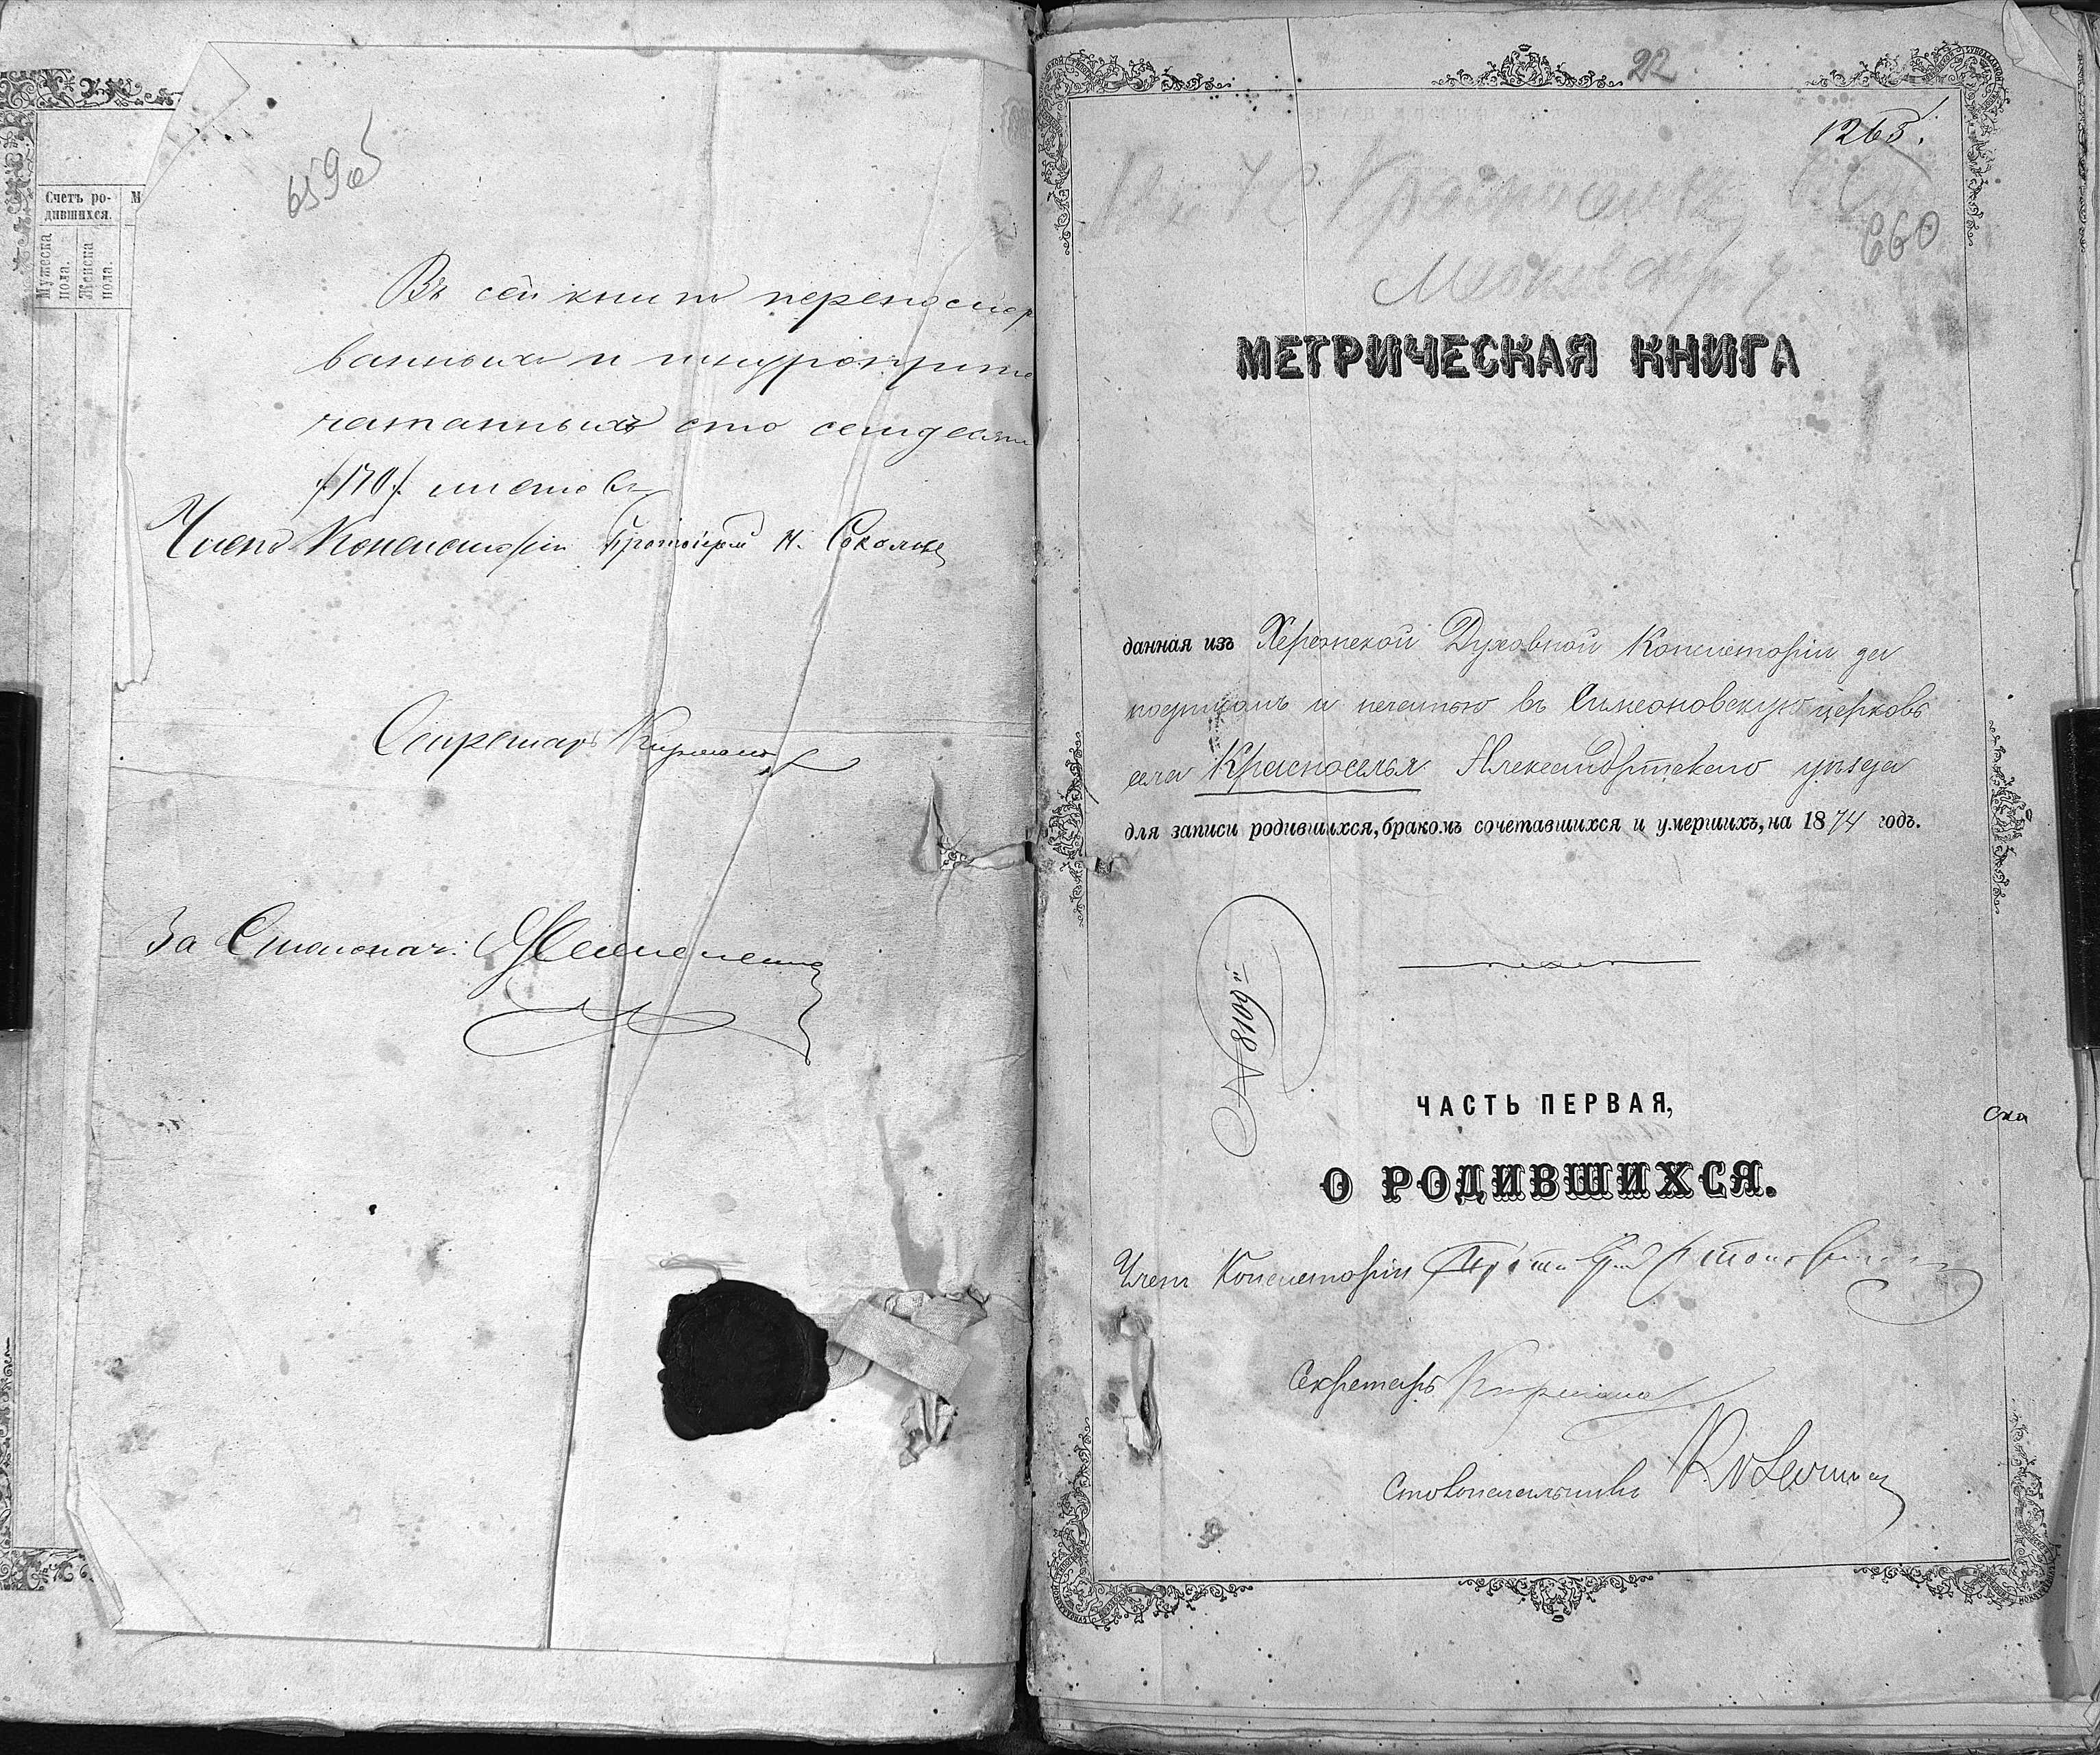 659об
Счетъ ро-
дившихся.
М
Мужеска
пола.
Женска
пола.
Въ сей книгѣ перенумер
ванныхъ и шнуроприпе
чатанныхъ сто семдесят
/170/. листовъ
Членъ Консисторіи Протоіерей Н. Соколовъ
Секретарь
За Столонач:
22
1265.
660
МЕТРИЧЕСКАЯ КНИГА
данная изъ Херсонской Духовной Консисторіи за
подписомъ и печатью въ Симеоновскую церковь
села Красноселья Александрійскаго уѣзда
для записи родившихся, бракомъ сочетавшихся и умершихъ, на 1874 годъ.
№ 8109
ЧАСТЬ ПЕРВАЯ,
О РОДИВШИХСЯ.
ска
Членъ Консисторіи
Секретарь
Столоначальникъ